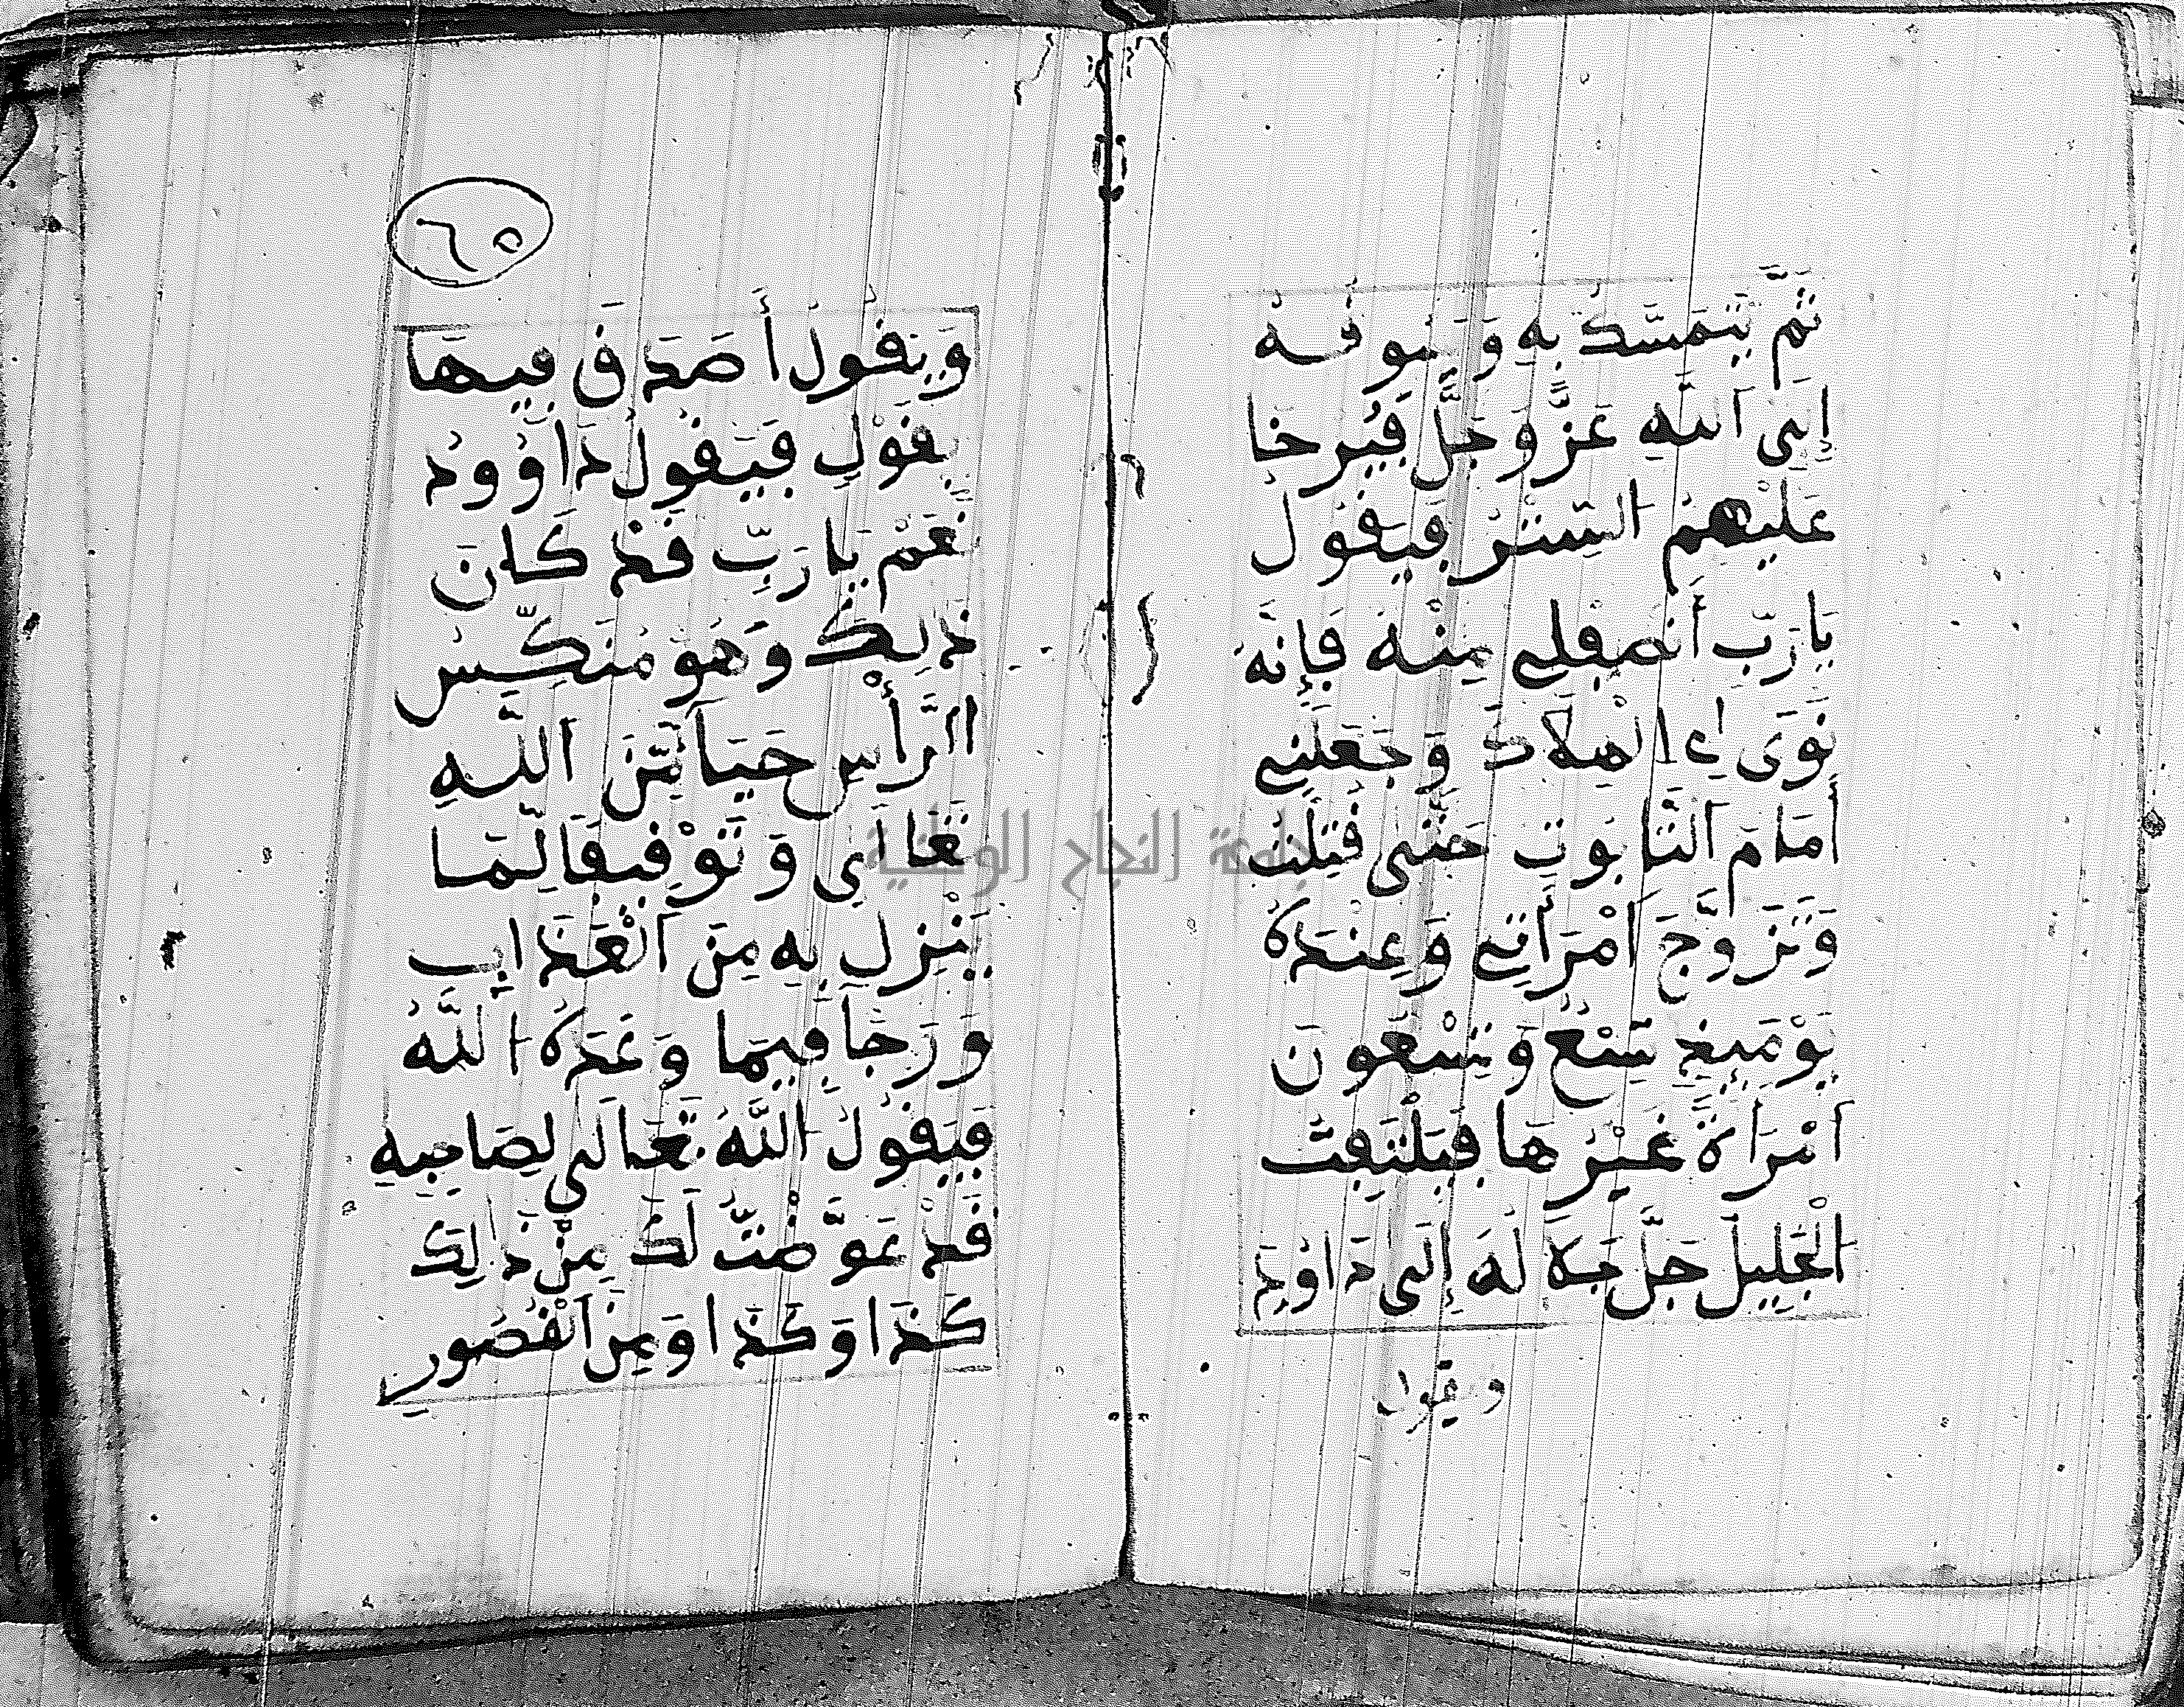 ثُمَّ يَتَمَسَّكُ بِهِ وَيَسُوقُهُ
إِلَى اللَّهِ عَزَّ وَجَلَّ فَيُرخَا
عَلَيْهِمْ السِّتْرُ فَيَقُولُ
يَارَبِّ أَنصِفْنِي مِنْهُ فَإِنَّهُ
نَوَى لِي الْهَلَاكَ وَجَعَلَنِي
أَمَامَ التَّابُوتِ حَتَّى قُتِلْتُ
وَتَزَوَّجَ امْرَأَتِي وَعِنْدَهُ
يَوْمَئِذٍ تِسْعٌ وَتِسْعُونَ
امْرَأَةً غَيْرُهَا فَيَلْتَفِتُ
الْجَلِيلُ جَلَّ جَلَالُهُ إِلَى دَاوُدَ
ويقول
٦٥
وَيَقُولُ أَصَدَقَ فِيهَا
يَقُولُ فَيَقُولُ دَاوُودُ
نَعَمْ يَارَبِّ قَدْ كَانَ
ذَلِكَ وَهُوَ مُنَكِّسُ
الرَّأْسِ حَيَاءً مِّنَ اللَّهِ
تَعَالَى وَتَوْفِيقًا لِّمَا
يَنْزِلُ بِهِ مِنَ الْعَذَابِ
وَرَجَاءً فِيمَا وَعَدَهُ اللَّهُ
فَيَقُولُ اللَّهُ تَعَالَى لِصَاحِبِهِ
قَدْ عَوَّضْتُّ لَكَ مِنْ ذَالِكَ
كَذَا وَكَذَا وَمِنَ الْقُصُورِ
جامعة النجاح الوطنية